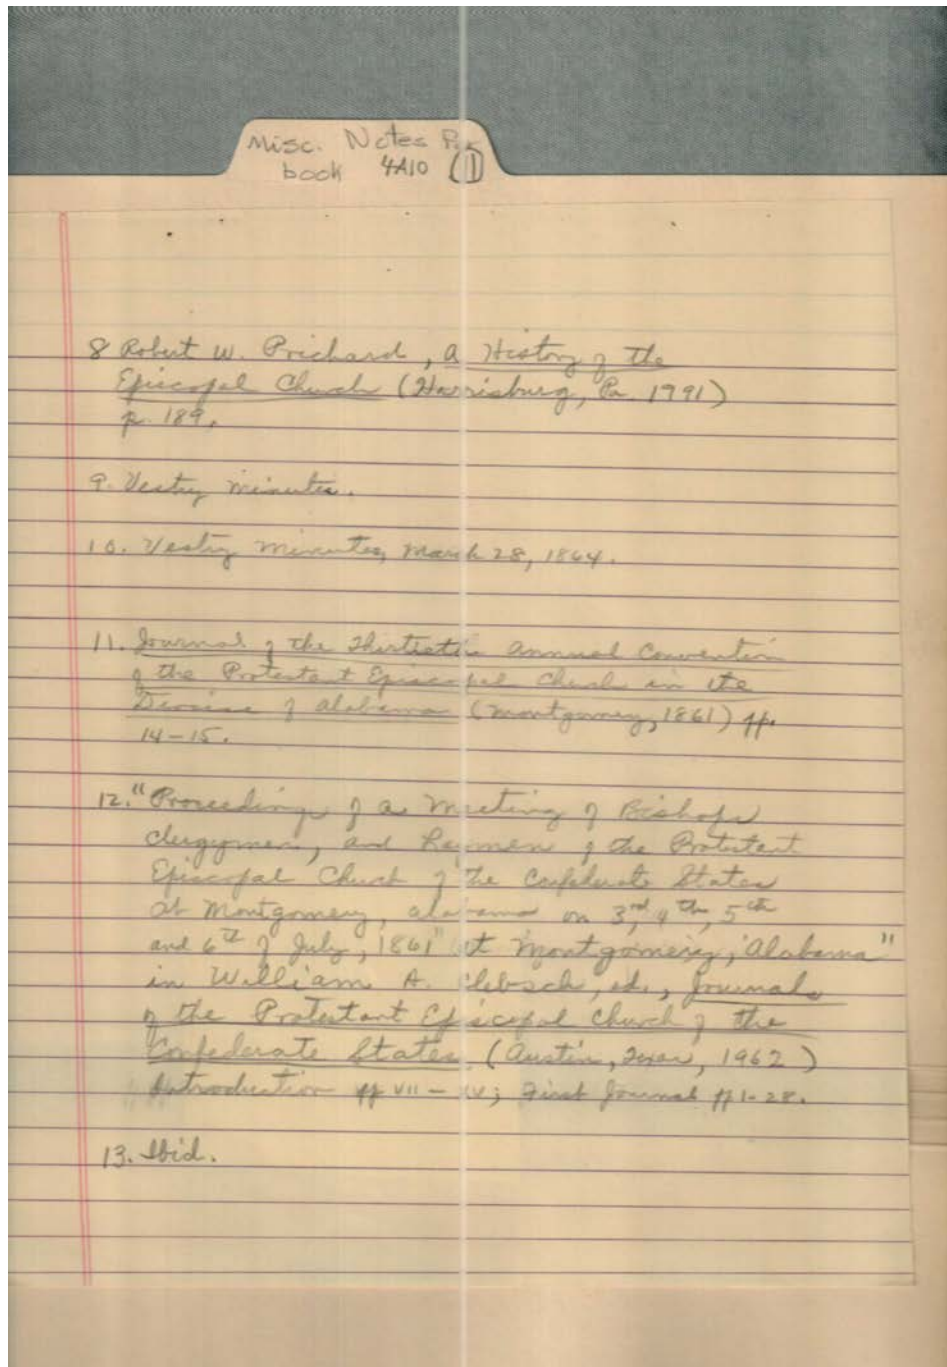 Misc. Notes
book 4A10 (1)
8 Robert W. Prichard, A History of the
Episcopal Church (Harrisburg, Pa. 1991)
p. 189,
9. Vestry minutes.
10. Vestry minutes, March 28, 1864.
11. Journal of the Thirtieth Annual Convention
of the Protestant Episcopal Church in the
Diocese of Alabama (Montgomery, 1861) pp.
14-15.
12. "Proceedings of a Meeting of Bishops
Clergymen, and Laymen of the Protestant
Episcopal Church of the Confederate States
at Montgomery, Alabama on 3rd, 4th, 5th
and 6th of July, 1861" at Montgomery, Alabama"
in William A. Clebsch, ed., Journals
of the Protestant Episcopal Church of the
Confederate States (Austin, Texas, 1962)
Introduction pp VII - XV; First Journal pp 1-28.
13. Ibid.